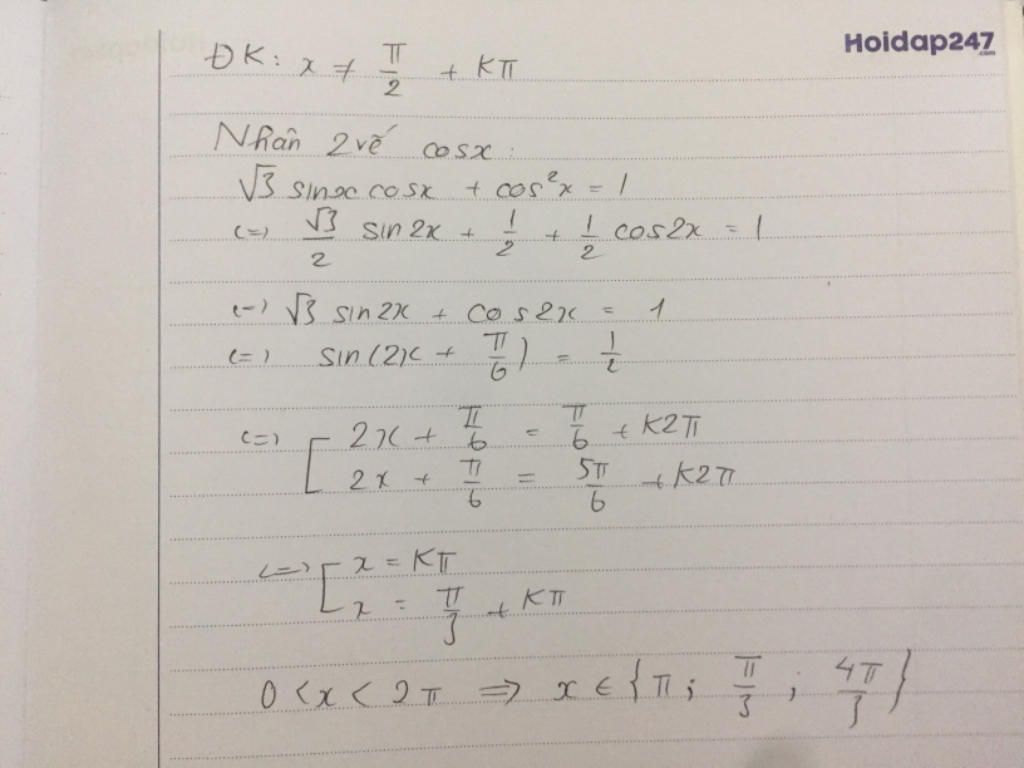 Hoidap247
.com
ĐK: x ≠ π/2 + Kπ
Nhân 2 vế cosx.
√3 sinx cosx + cos²x = 1
(=) √3/2 sin2x + 1/2 + 1/2 cos2x = 1
(=) √3 sin2x + cos2x = 1
(=) sin(2x + π/6) = 1/2
(=) [ 2x + π/6 = π/6 + K2π
2x + π/6 = 5π/6 + K2π
(=) [ x = Kπ
x = π/3 + Kπ
0 < x < 2π => x ∈ {π; π/3; 4π/3}